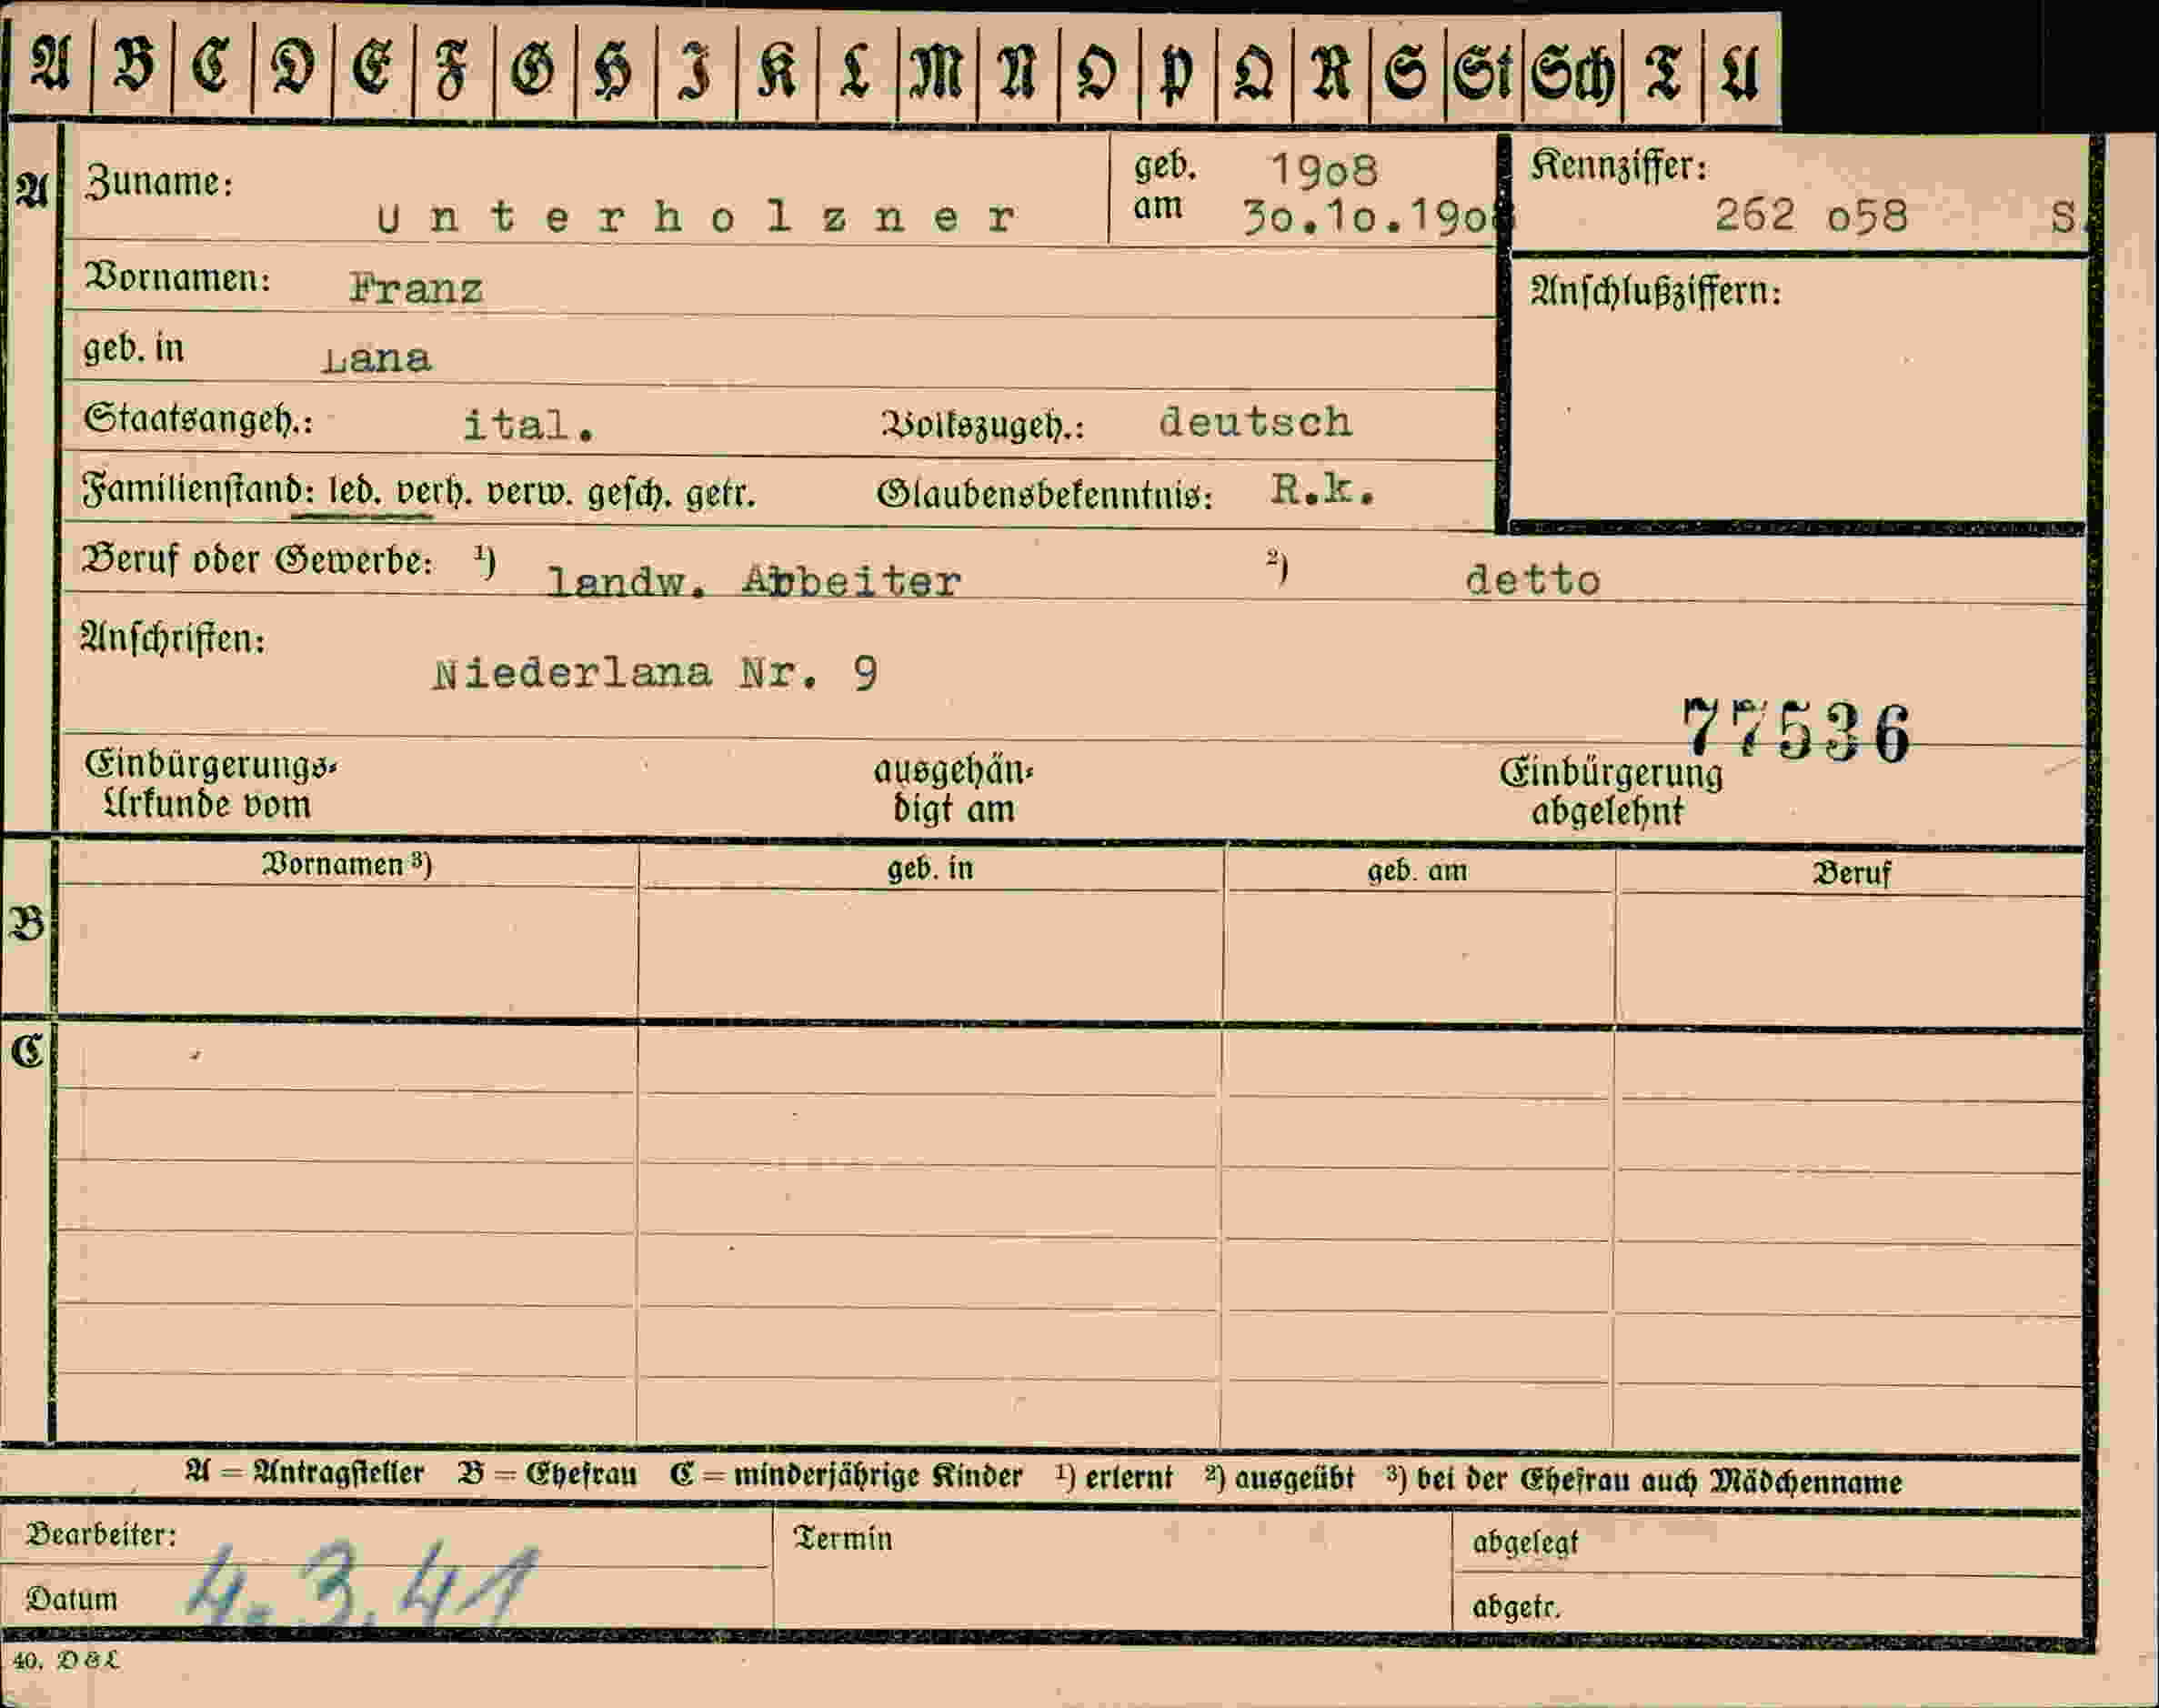 A B C D E F G H I K L M N O P Q R S St Sch T U
A Zuname: unterholzner geb. am 1908 30.10.1908 Kennziffer: 262 058 S.
Vornamen: Franz Anschlußziffern:
geb. in Lana
Staatsangeh.: ital. Volkszugeh.: deutsch
Familienstand: led. verh. verw. gesch. getr. Glaubensbekenntnis: R.k.
Beruf oder Gewerbe: 1) landw. Arbeiter 2) detto
Anschriften:
Niederlana Nr. 9
77536
Einbürgerungs- ausgehän- Einbürgerung
Urkunde vom digt am abgelehnt
Vornamen 3) geb. in geb. am Beruf
B
C
A = Antragsteller B = Ehefrau C = minderjährige Kinder 1) erlernt 2) ausgeübt 3) bei der Ehefrau auch Mädchenname
Bearbeiter: Termin abgelegt
Datum 4.3.41 abgetr.
40. D & L